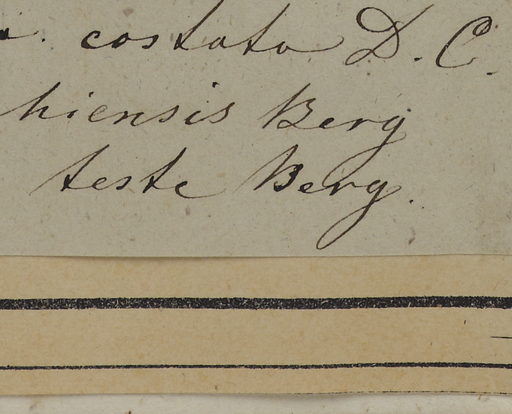 . costato D. C.
hiensis Berg
teste Berg.